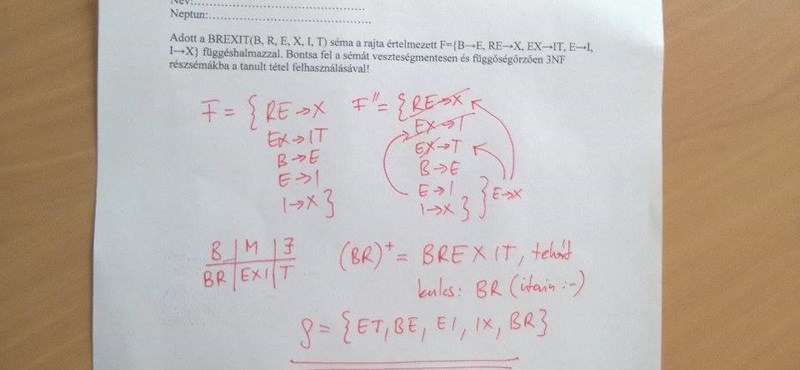 Név:
Neptun:
Adott a BREXIT(B, R, E, X, I, T) séma a rajta értelmezett F={B→E, RE→X, EX→IT, E→I,
I→X} függéshalmazzal. Bontsa fel a sémát veszteségmentesen és függőségőrzően 3NF
részsémákba a tanult tétel felhasználásával!
F = { RE→X
EX→IT
B→E
E→I
I→X }
F'' = { RE→X
EX→I
EX→T
B→E
E→I
I→X } } E→X
B | M | J
BR | EXI | T
(BR)⁺ = BREXIT, tehát
kulcs: BR (:-)
ρ = {ET, BE, EI, IX, BR}